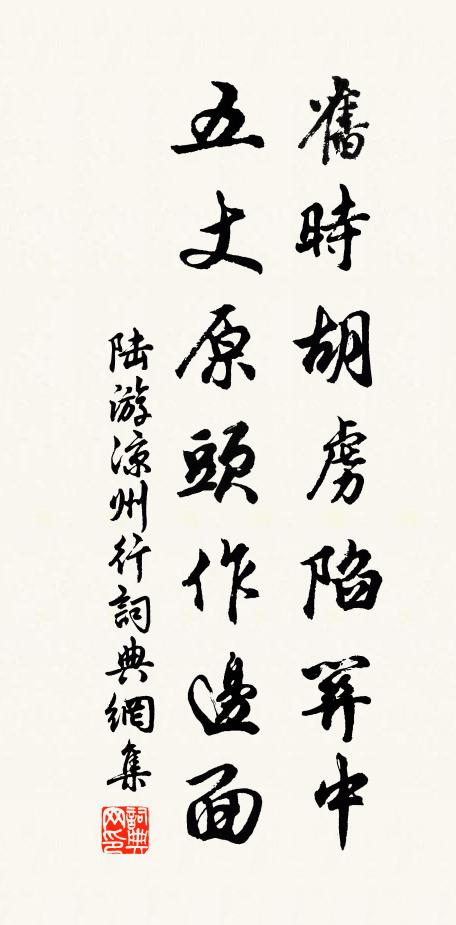 舊時胡虜陷關中
五丈原頭作邊面
陆游凉州行詞典網集
詞典
网印